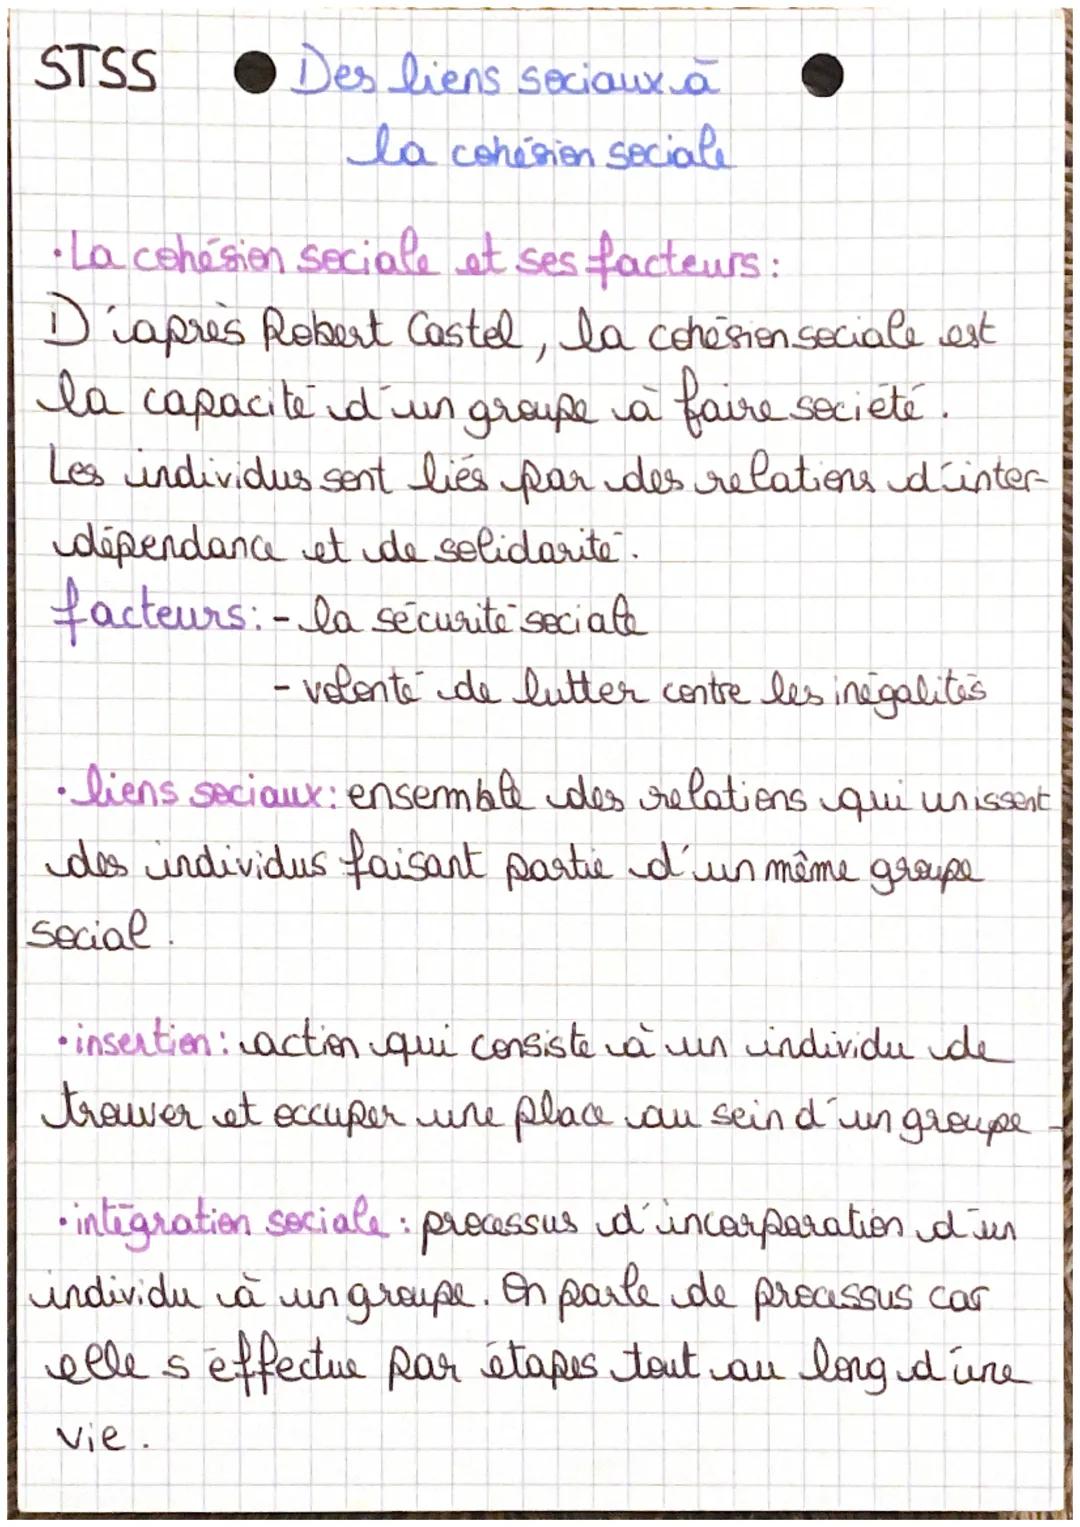 STSS
Des liens sociaux à
la cohésion sociale
• La cohésion sociale et ses facteurs :
D'après Robert Castel, la cohésion sociale est
la capacité d'un groupe à faire société.
Les individus sont liés par des relations d'inter-
dépendance et de solidarité.
facteurs : - la sécurité sociale
- volonté de lutter contre les inégalités
• liens sociaux : ensemble des relations qui unissent
des individus faisant partie d'un même groupe
social.
• insertion : action qui consiste à un individu de
trouver et occuper une place au sein d'un groupe -
• intégration sociale : processus d'incorporation d'un
individu à un groupe. On parle de processus car
elle s'effectue par étapes tout au long d'une
vie.